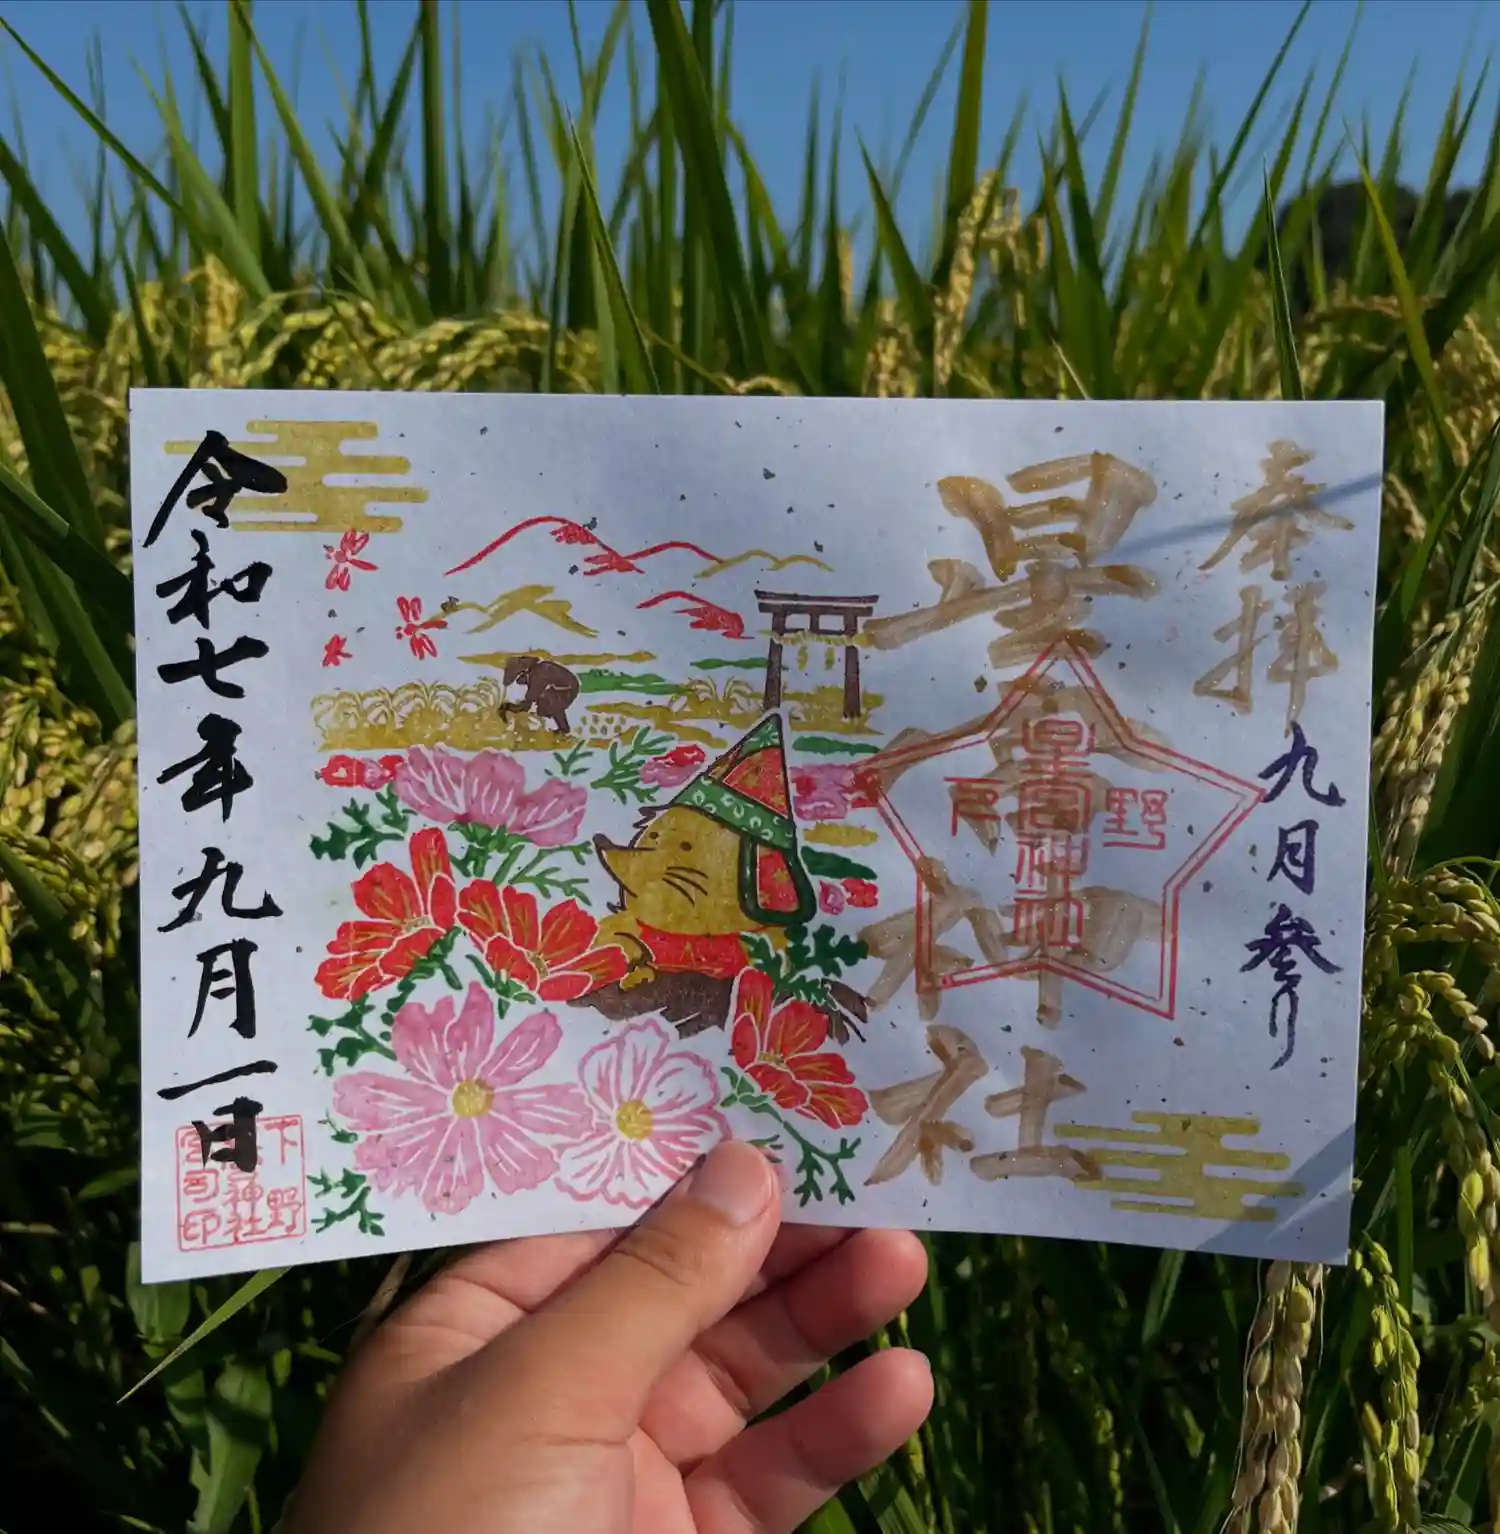 奉拝
九月参り
星宮神社
下野
星宮神社
令和七年九月一日
下野
星宮神社
宮司印